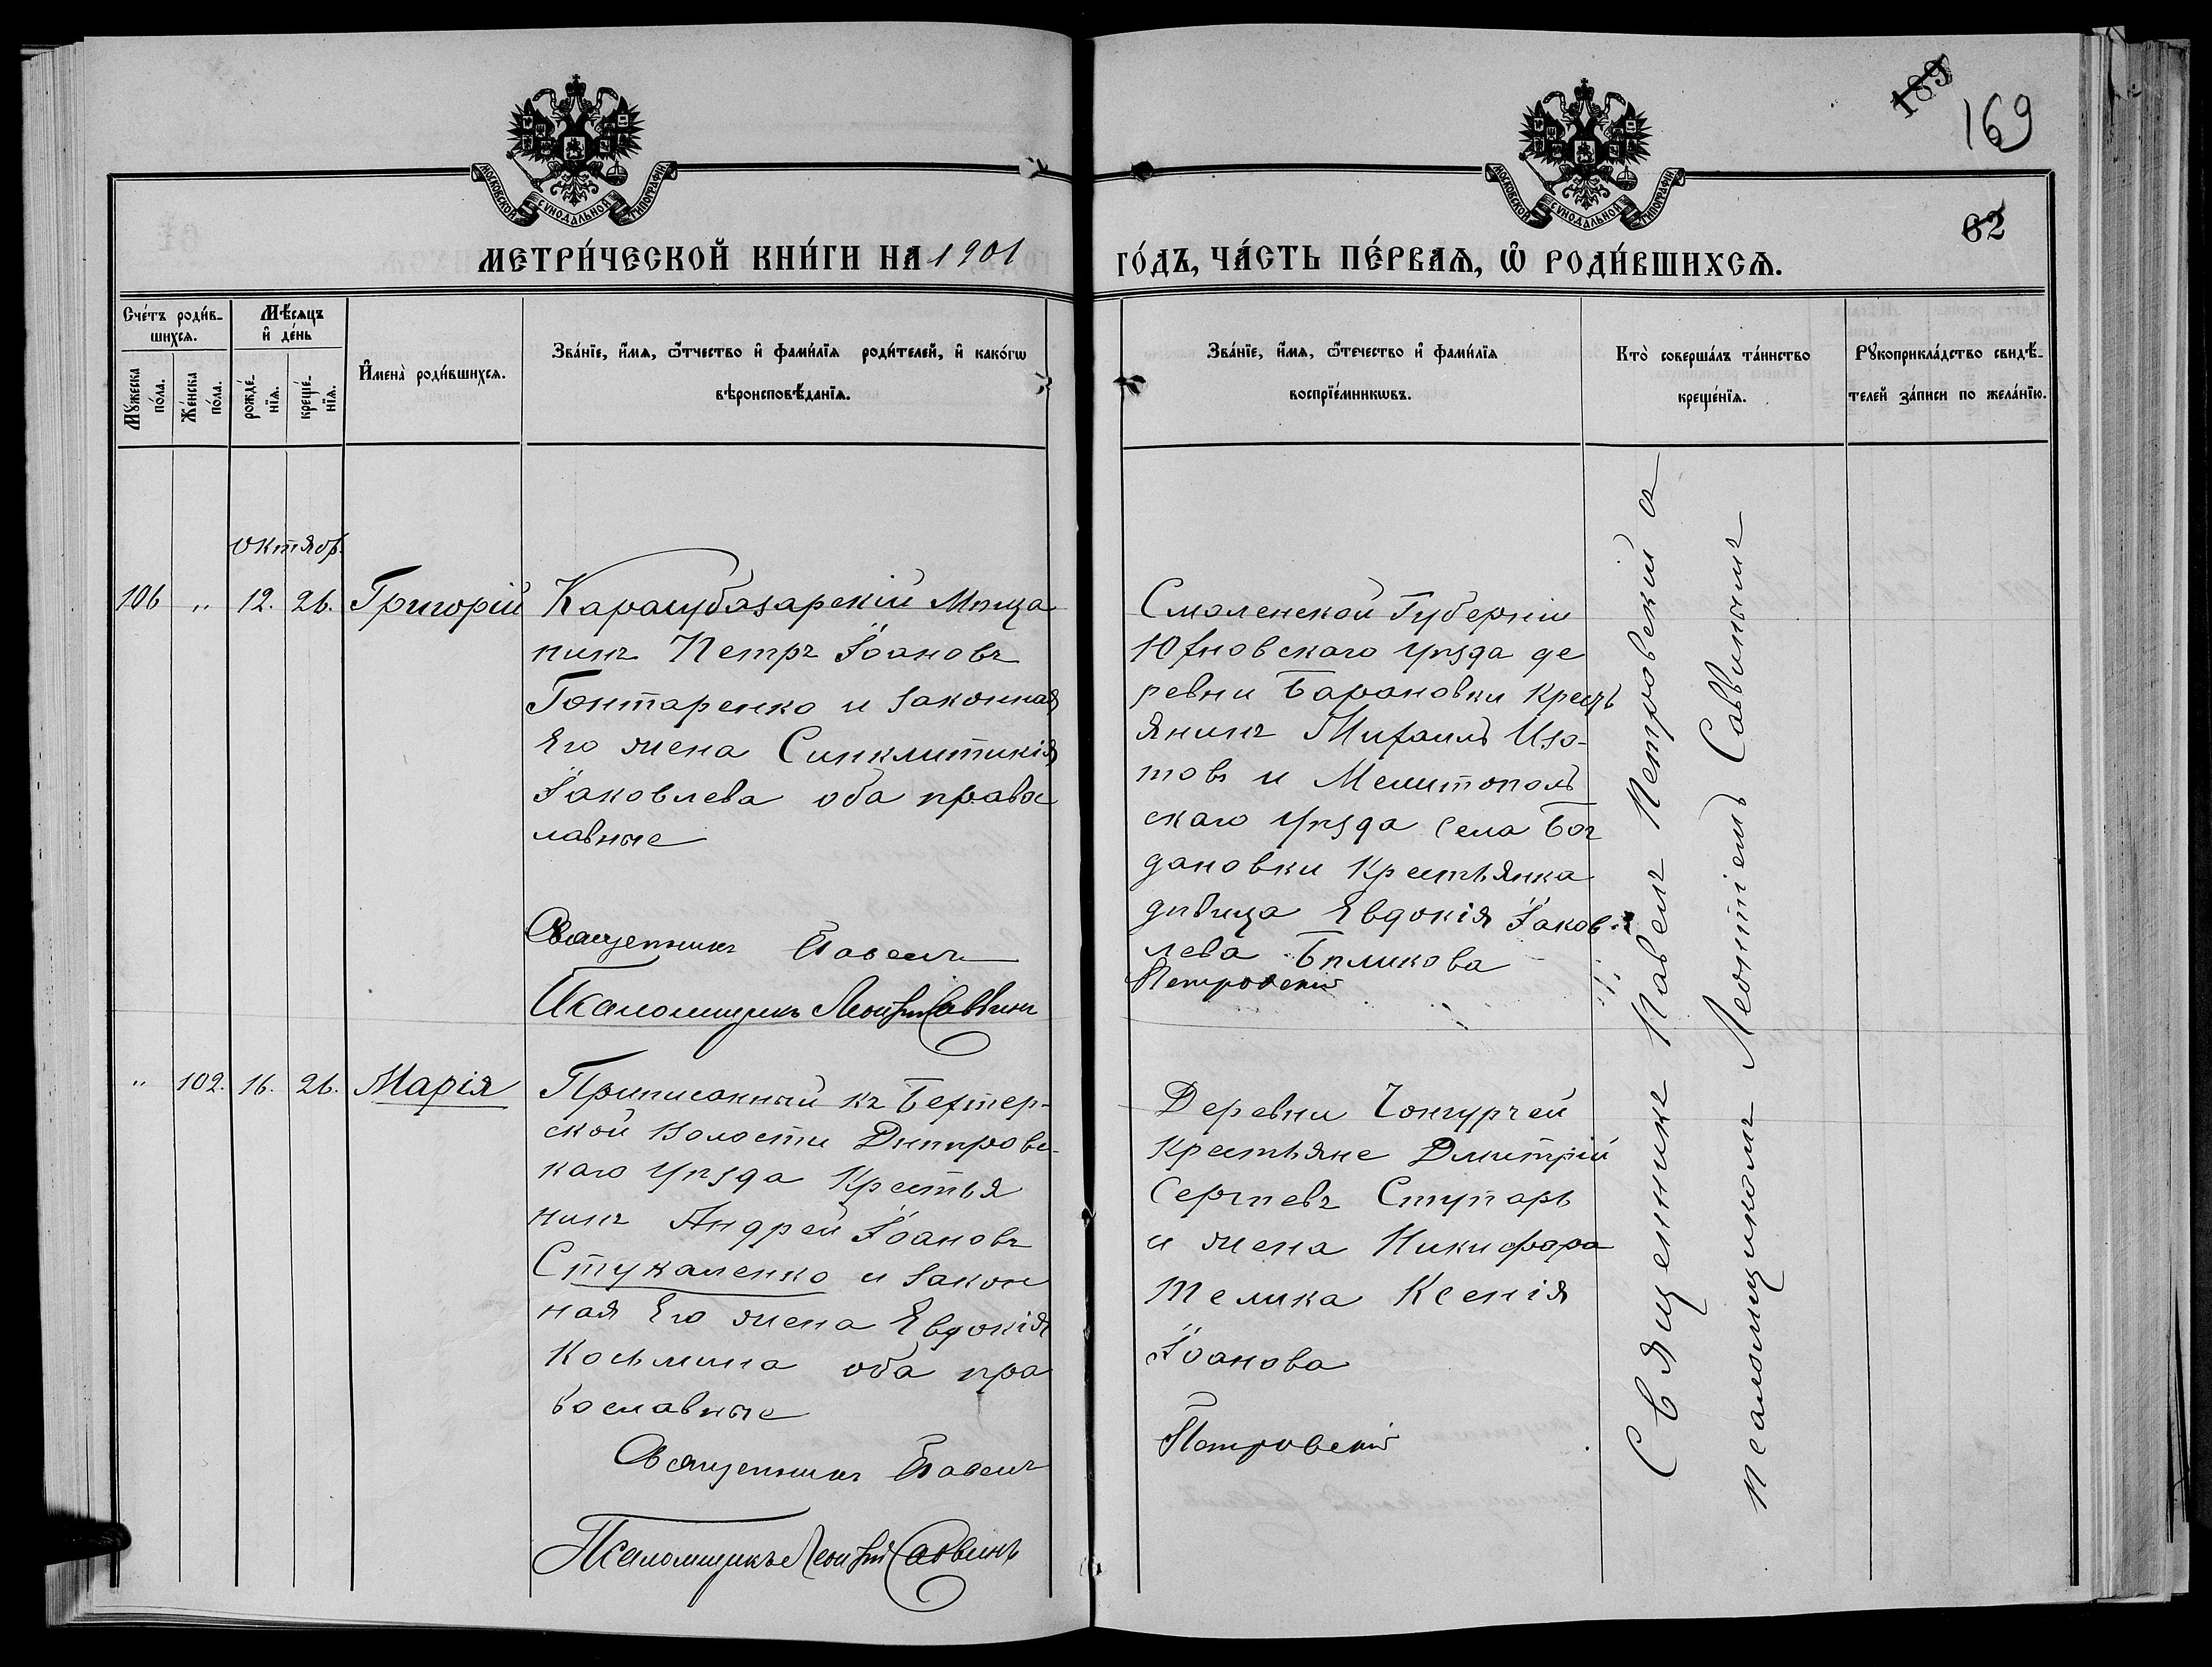 189
169
62
МОСКОВСКОЙ СѴНОДАЛЬНОЙ ТИПОГРАФІИ
МОСКОВСКОЙ СѴНОДАЛЬНОЙ ТИПОГРАФІИ
МЕТРИ́ЧЕСКОЙ КНИ́ГИ НА 1901
ГО́ДЪ, ЧА́СТЬ ПЕ́РВАѦ, Ѡ҆ РОДИ́ВШИХСѦ.
Сче́тъ роди́в-
шихсѧ.
Мꙋ́жеска
по́ла.
Же́нска
по́ла.
Мѣ́сѧцъ
и҆ де́нь
рожде́-
нїѧ.
креще́-
нїѧ.
И҆мена̀ роди́вшихсѧ.
Зва́нїе, и҆́мѧ, ѻ҆́тчество и҆ фами́лїѧ роди́телей, и҆ како́гѡ
вѣроисповѣ́данїѧ.
Зва́нїе, и҆́мѧ, ѻ҆те́чество и҆ фами́лїѧ
воспрїе́мникѡвъ.
Кто̀ соверша́лъ та́инство
креще́нїѧ.
Рꙋкоприкла́дство свидѣ́-
телей за́писи по жела́нїю.
октябр.
106 „ 12. 26. Григорій
Карасубазарскій Мѣща
нинъ Петръ Іоановъ
Гонтаренко и законная
Его жена Синклитикія
Іаковлева оба правос
лавные
Священникъ Павелъ
Псаломщикъ Леонтій Саввинъ
Смоленской Губерніи
Юхновскаго уѣзда де
ревни Барановки Крест
янинъ Михаилъ Изо-
товъ и Мелитополь
скаго уѣзда села Бог
дановки Крестьянка
дѣвица Евдокія Іаков-
лева Бѣликова
Петровскій
„ 102. 16. 26. Марія
Приписанный къ Бехтер-
ской волости Днѣпровс-
каго уѣзда Крестья
нинъ Андрей Іоановъ
Стукаленко и закон
ная Его жена Евдокія
Косьмина оба пра
вославные
Священникъ Павелъ
Псаломщикъ Леонтій Саввинъ
Деревни Чонгурчей
Крестьяне Дмитрій
Сергѣевъ Ступарь
и жена Никифора
Телика Ксенія
Іоанова
Петровскій
Священникъ Павелъ Петровскій съ
псаломщикомъ Леонтіемъ Саввинымъ